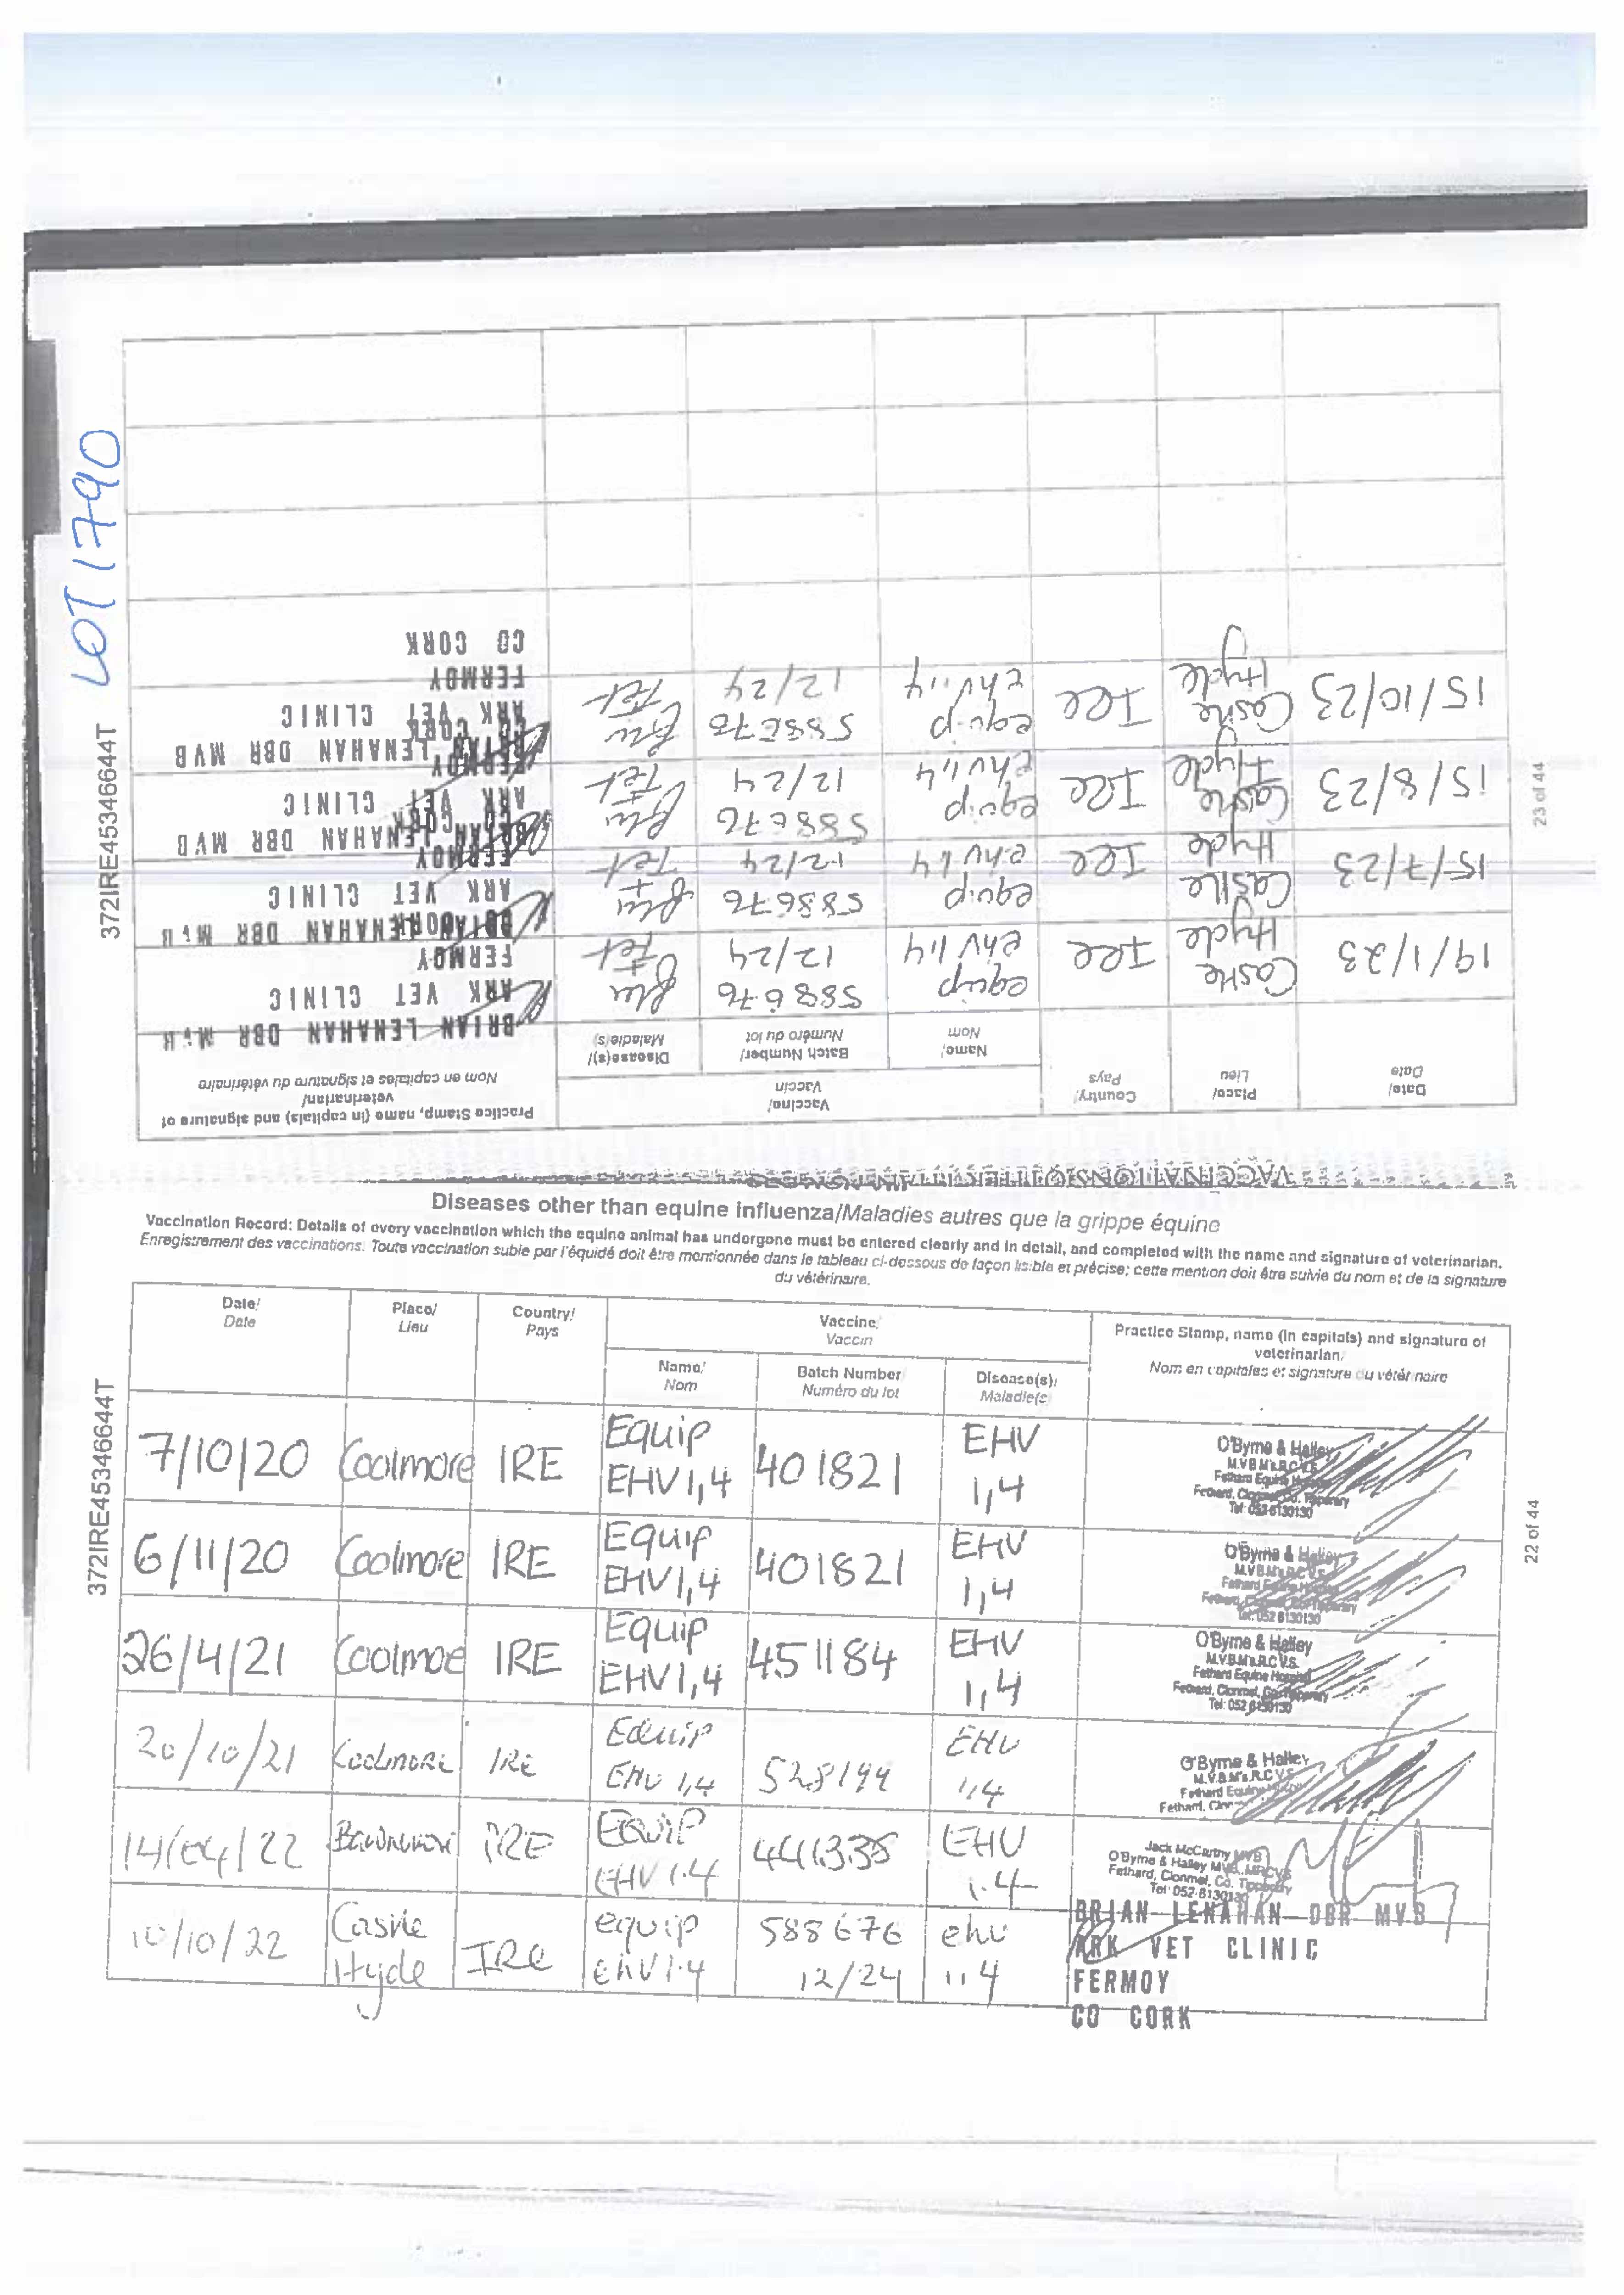 LOT 1790
372IRE45346644T
23 of 44
Date/ Date
Place/ Lieu
Country/ Pays
Vaccine/ Vaccin
Name/ Nom
Batch Number/ Numéro du lot
Disease(s)/ Maladie(s)
Practice Stamp, name (in capitals) and signature of veterinarian/
Nom en capitales et signature du vétérinaire
19/1/23 Castle Hyde Ire equip ehv 1,4 588676 12/24 flu + Tet
BRIAN LENAHAN DBR MVB
ARK VET CLINIC
FERMOY
CO CORK
15/7/23 Castle Hyde Ire equip ehv 1,4 588676 12/24 flu + Tet
BRIAN LENAHAN DBR MVB
ARK VET CLINIC
FERMOY
CO CORK
15/8/23 Castle Hyde Ire equip ehv 1,4 588676 12/24 flu + Tet
BRIAN LENAHAN DBR MVB
ARK VET CLINIC
FERMOY
CO CORK
15/10/23 Castle Hyde Ire equip ehv 1,4 588676 12/24 flu Tet
BRIAN LENAHAN DBR MVB
ARK VET CLINIC
FERMOY
CO CORK
VACCINATIONS
Diseases other than equine influenza/Maladies autres que la grippe équine
Vaccination Record: Details of every vaccination which the equine animal has undergone must be entered clearly and in detail, and completed with the name and signature of veterinarian.
Enregistrement des vaccinations: Toute vaccination subie par l'équidé doit être mentionnée dans le tableau ci-dessous de façon lisible et précise; cette mention doit être suivie du nom et de la signature
du vétérinaire.
372IRE45346644T
22 of 44
Date/ Date
Place/ Lieu
Country/ Pays
Vaccine/ Vaccin
Name/ Nom
Batch Number Numéro du lot
Disease(s)/ Maladie(s)
Practice Stamp, name (in capitals) and signature of veterinarian/
Nom en capitales et signature du vétérinaire
7/10/20 Coolmore IRE Equip EHV1,4 401821 EHV 1,4
O'Byrne & Halley
M.V.B M's.R.C.V.S.
Fethard Equine Hospital
Fethard, Clonmel, Co. Tipperary
Tel: 052-6130130
6/11/20 Coolmore IRE Equip EHV1,4 401821 EHV 1,4
O'Byrne & Halley
M.V.B M's.R.C.V.S.
Fethard Equine Hospital
Fethard, Clonmel, Co. Tipperary
Tel: 052 6130130
26/4/21 Coolmoe IRE Equip EHV1,4 451184 EHV 1,4
O'Byrne & Halley
M.V.B.M's.R.C.V.S.
Fethard Equine Hospital
Fethard, Clonmel, Co. Tipperary
Tel: 052 6130130
20/10/21 Coolmore IRE Equip EHV 1,4 528199 EHV 1,4
O'Byrne & Halley
M.V.B.M's.R.C.V.S.
Fethard Equine
Fethard,
14/04/22 IRE Equip EHV 1.4 EHV 1.4
Jack McCarthy MVB
O'Byrne & Halley MVB. MRCVS
Fethard, Clonmel, Co. Tipperary
Tel: 052-6130130
10/10/22 Castle Hyde IRe equip ehv 1.4 588676 12/24 ehv 1,4
BRIAN LENAHAN DBR MVB
ARK VET CLINIC
FERMOY
CO CORK